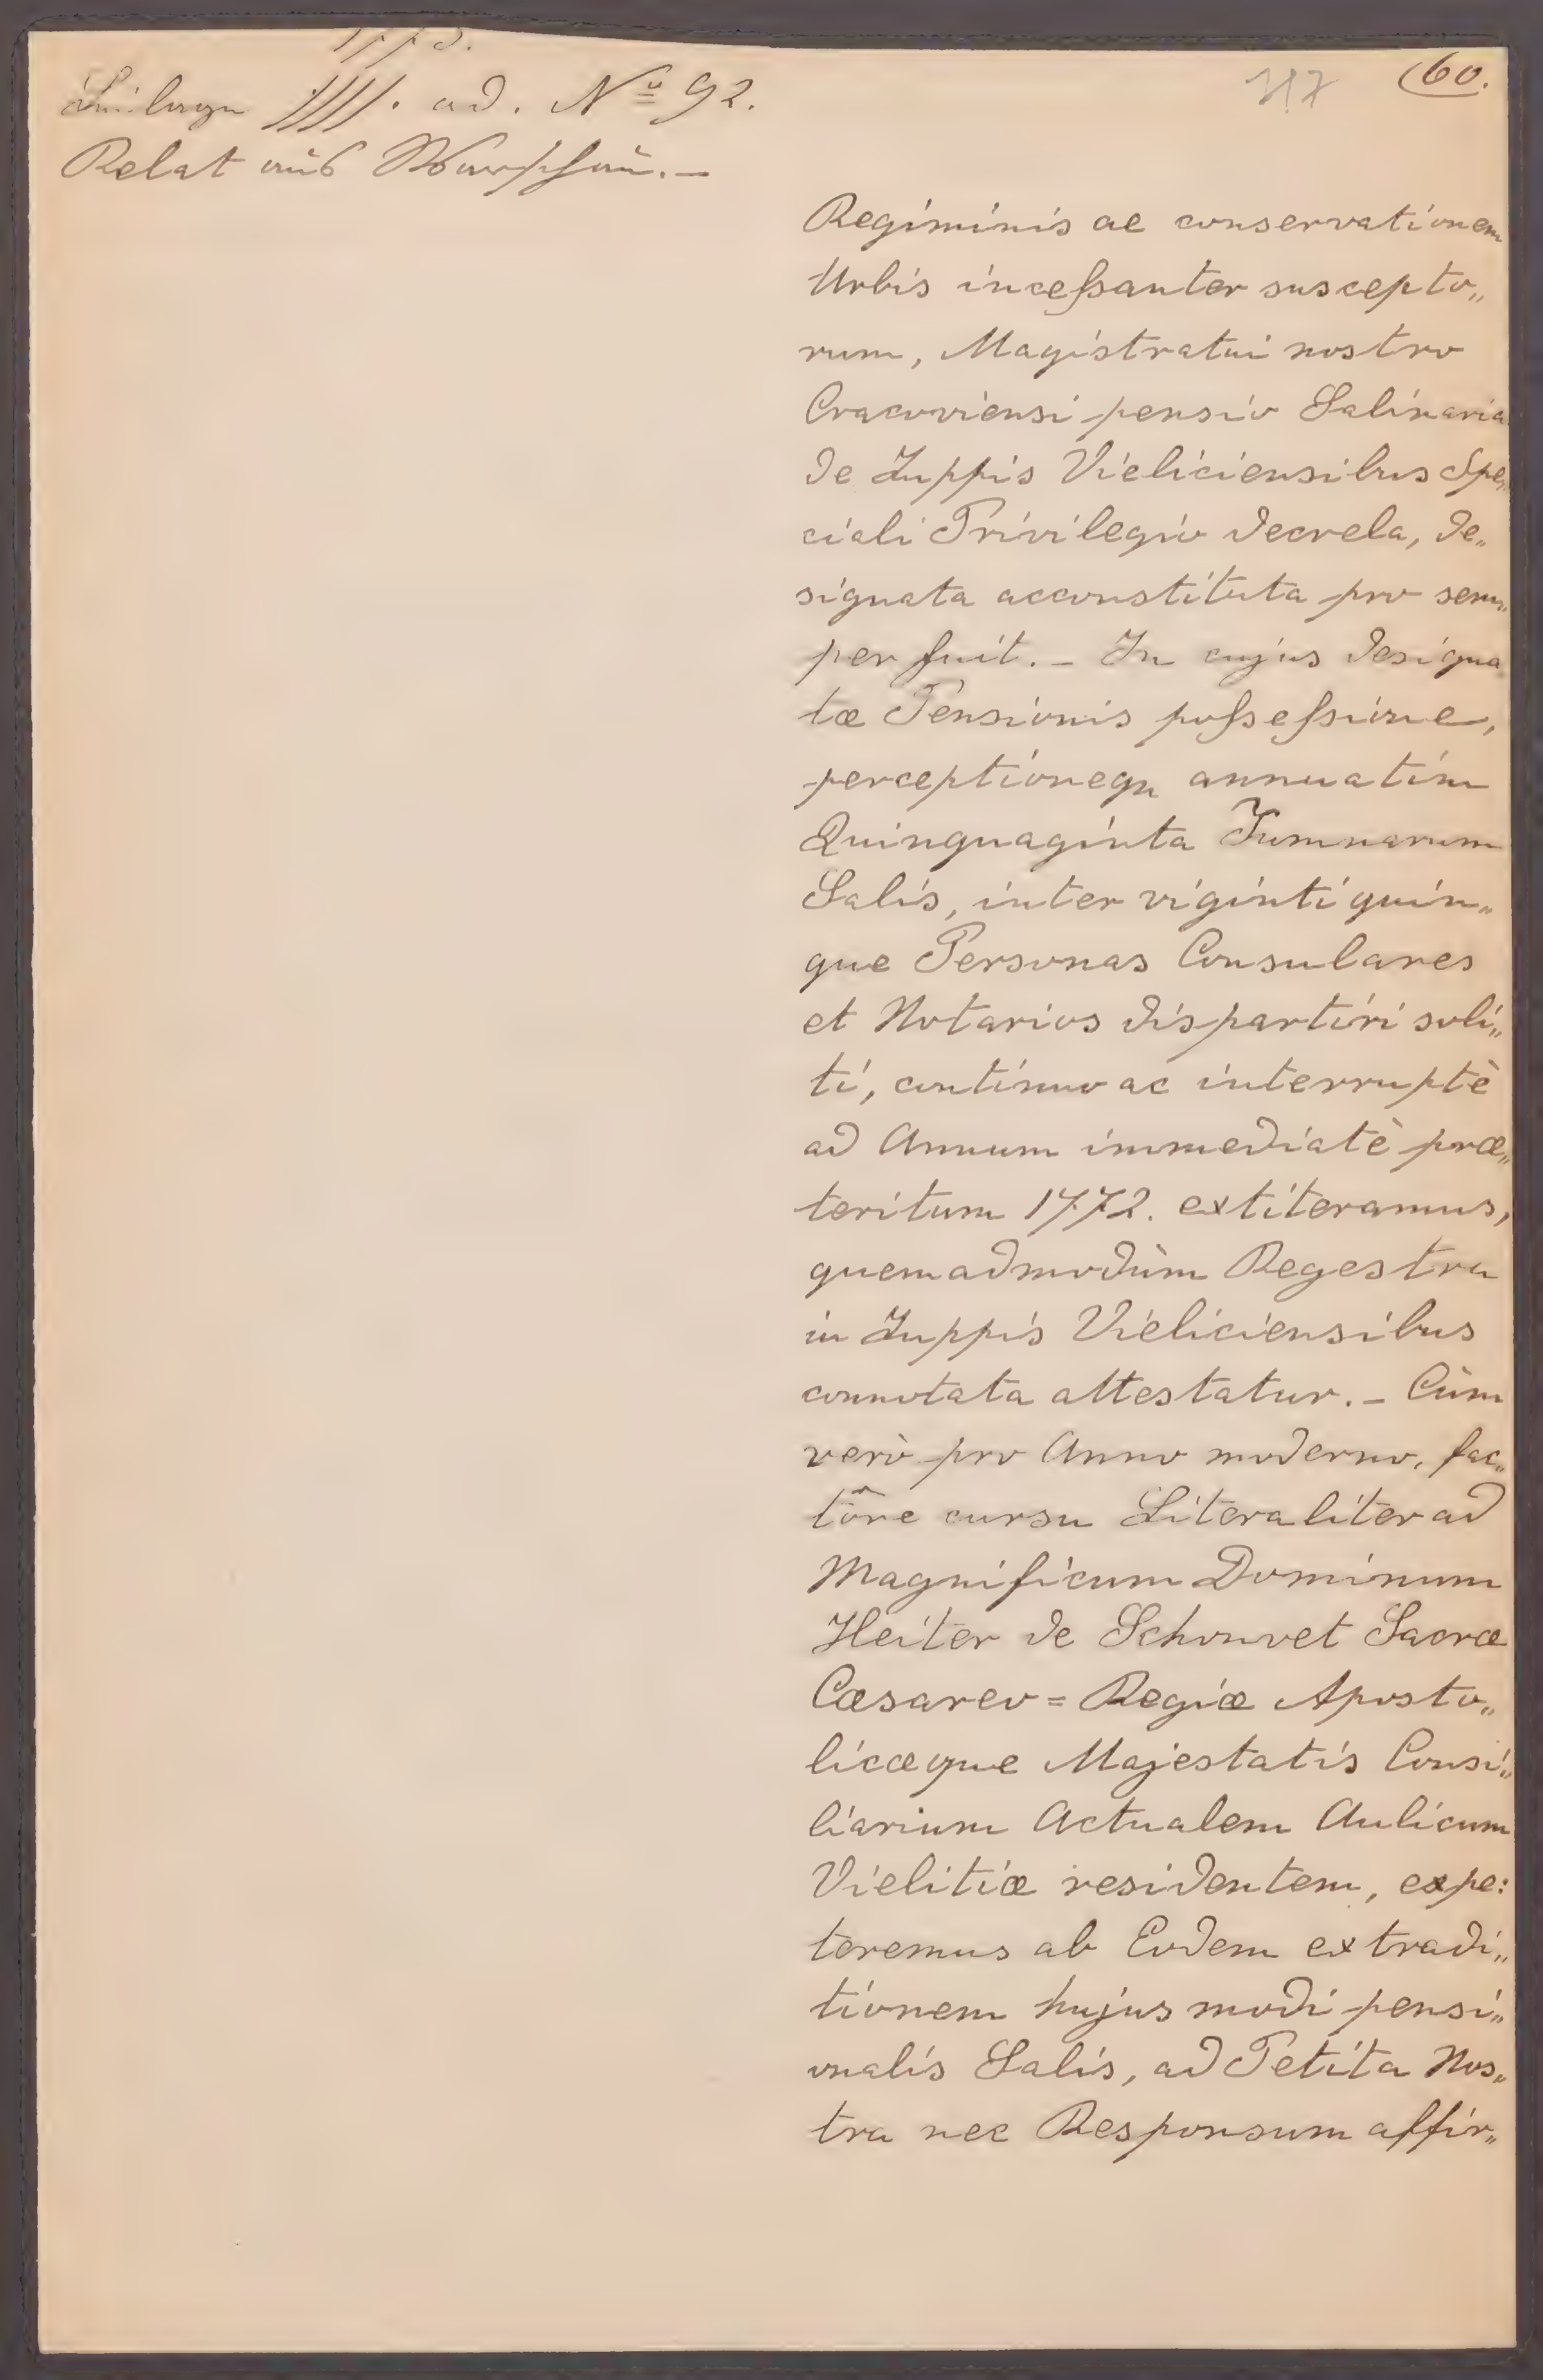 1773.
Beilage JJJJ. ad. No 92.
Relat aus Warschau. –
317 60.
Regiminis ac conservationem
Urbis inceßanter suscepto„
rum, Magistratui nostro
Cracoviensi pensio Salinaria
de Zuppis Vieliciensibus Spe„
ciali Privilegio decrela, de„
signata acconstituta pro sem„
per fuit. – In cujus designa„
tæ Pensionis poßeßione,
perceptioneqe annuatim
Quinquaginta Tumnarum
Salis, inter viginti quin„
que Personas Consulares
et Notarios dispartiri soli„
ti, continuo ac interruptè
ad Annum immediatè præ„
teritum 1772. extiteramus,
quemadmodùm Regestra
in Zuppis Vieliciensibus
connotata attestatur. – Cùm
verò pro Anno moderno, fac„
tôre cursu Literaliter ad
Magnificum Dominum
Heiter de Schonvet Sacræ
Cæsareo = Regiæ Aposto„
licæque Majestatis Consi„
liarium Actualem Aulicum
Vielitiæ residentem, expe:
teremus ab Eodem extradi„
tionem hujus modi pensi„
onalis Salis, ad Petita Nos„
tra nec Responsum affir„